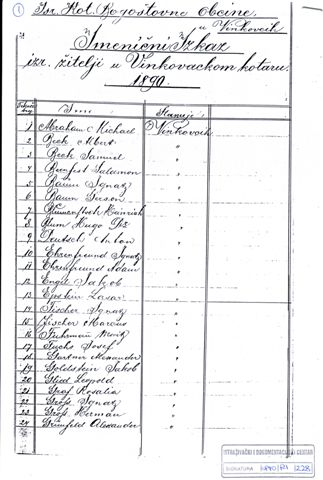 1
Izr. Kot. Bogoštovne obćine
u Vinkovcih
Imenični Izkaz
izr. žitelji u Vinkovačkom kotaru.
1890.
Ime Stanuje
1 Abraham Michael Vinkovcih
2 Beck Albert "
3 Beck Samuel "
4 Salamon "
5 Baum Ignatz "
6 Baum Gerson "
7 Heinrich "
8 Blum Hugo "
9 Deutsch Anton "
10 Ehrenfreund Ignatz "
11 Ehrenfreund Adam "
12 Engel Jakob "
13 Epstein Lazar "
14 Fischer Ignatz "
15 Fischer Marcus "
16 Fuhrmann Moritz "
17 Fuchs Josef "
18 Gartner Alexander "
19 Goldstein Jakob "
20 Glied Leopold "
21 Graf Rosalia "
22 Gross Ignatz "
23 Gross Herman "
24 Grünfeld Alexander "
ISTRAŽIVAČKI I DOKUMENTACIJSKI CENTAR
SIGNATURA 1228